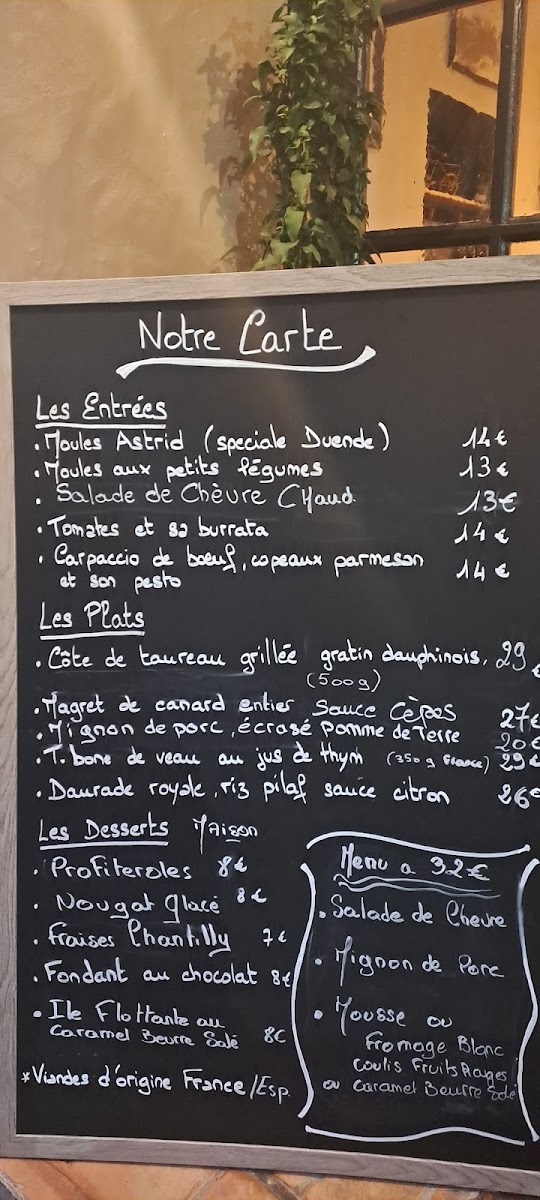 Notre Carte
Les Entrées
. Moules Astrid (speciale Duende) 14€
. Moules aux petits légumes 13€
. Salade de Chèvre CHaud 13€
. Tomates et sa burrata 14€
. Carpaccio de bœuf, copeaux parmesan 14€
et son pesto
Les Plats
. Côte de taureau grillée gratin dauphinois, 29€
(500g)
. Magret de canard entier sauce Cèpes 27€
. Mignon de porc, écrasé pomme de Terre 20€
. T. bone de veau au jus de thym (350g France) 29€
. Daurade royale, riz pilaf sauce citron 26€
Les Desserts Maison
. Profiteroles 8€
. Nougat glacé 8€
. Fraises Chantilly 7€
. Fondant au chocolat 8€
. Ile Flottante au
Caramel Beurre Salé 8€
*Viandes d'origine France/Esp.
Menu a 32€
. Salade de Chevre
. Mignon de Porc
. Mousse ou
Fromage Blanc
Coulis Fruits Rouges
ou Caramel Beurre Salé